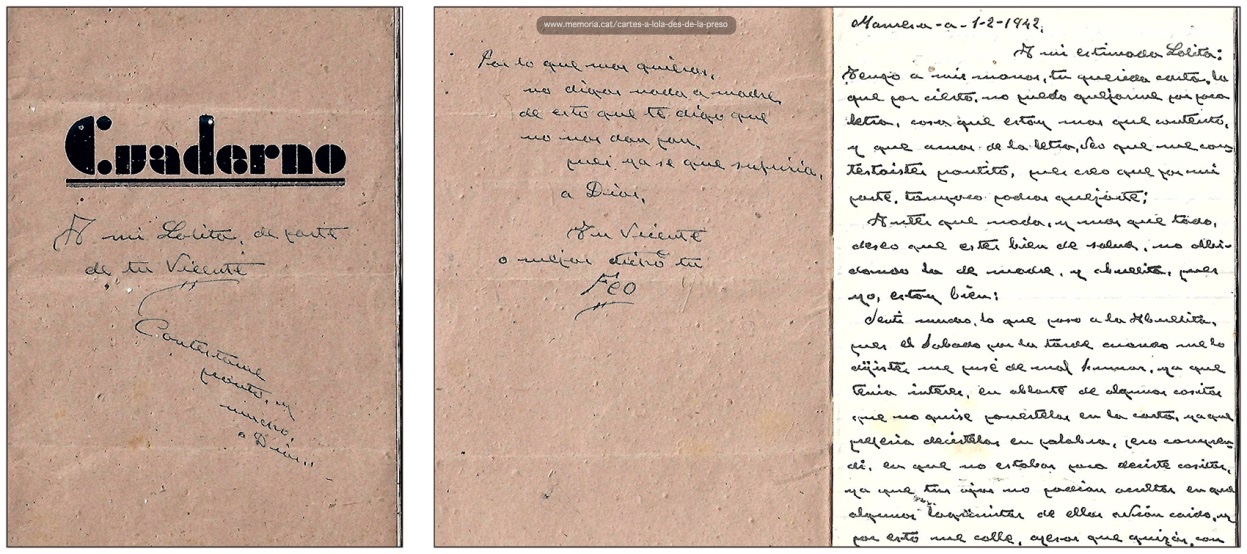 Cuaderno
A mi Lolita, de parte
de tu Vicente
Contestame
pronto, y
mucho,
a Dios,,
www.memoria.cat/cartes-a-lola-des-de-la-preso
Por lo que mas quieras,
no digas nada a madre
de esto que te digo que
no nos dan pan,
pues ya se que sufriria,
a Dios,
Tu Vicente
o mejor dicho tu
Feo
Manresa-a-1-2-1942,
A mi estimada Lolita:
Tengo a mis manos, tu querida carta, la
que por cierto, no puedo quejarme por poca
letra, cosa que estoy mas que contento,
y que amas de la letra, veo que me con
testastes prontito, pues creo que por mi
parte, tampoco podras quejarte;
Antes que nada, y mas que todo,
deseo que estes bien de salud, no olbi-
dando la de madre, y abuelita, pues
yo, estoy bien;
Senti mucho, lo que paso a la Abuelita,
pues el Sabado por la tarde cuando me lo
dijistes me pusé de mal humor, ya que
tenia interes, en ablarte de algunas cositas
que no quise ponertelas en la carta, ya que
preferia decirtelas en palabra, pero compren
di, en que no estabas para decirte cositas,
ya que tus ojos no podian ocultar en que
algunas lagrimitas de ellos avian caido, y
por esto me calle, apesar que quizás, con